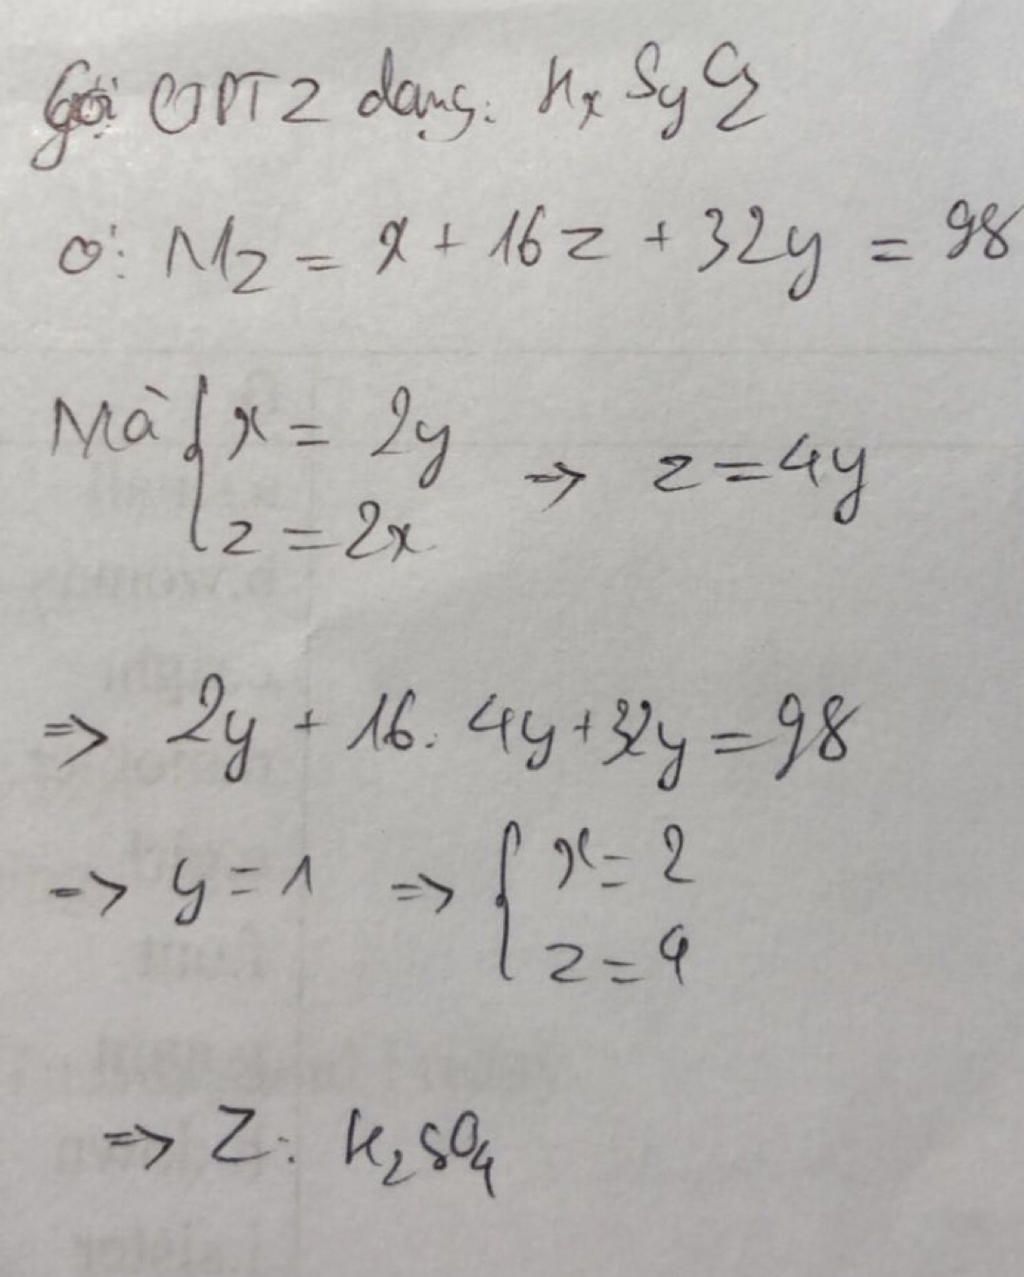 Gọi CTPT Z dạng: HxSyOz
Có: MZ = x + 16z + 32y = 98
Mà { x = 2y
z = 2x => z = 4y
=> 2y + 16. 4y + 32y = 98
-> y = 1 => { x = 2
z = 4
=> Z: H2SO4